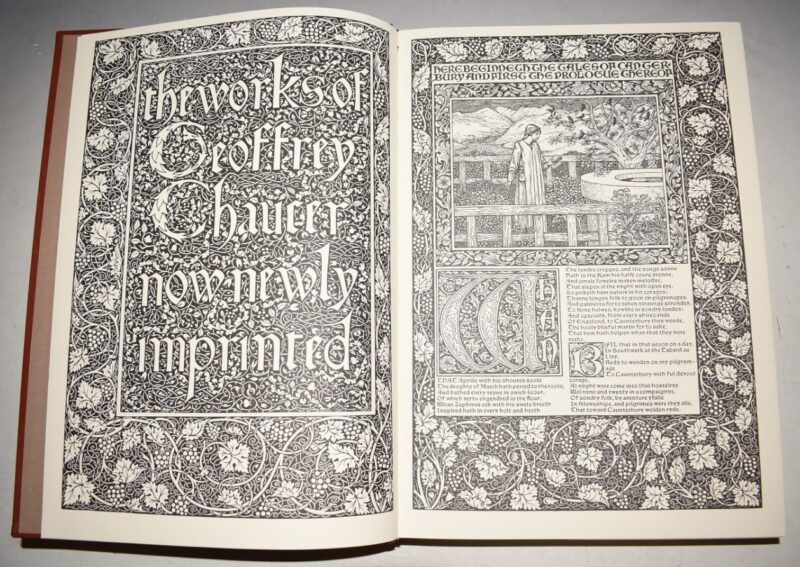 the works of
Geoffrey
Chaucer
now newly
imprinted
HERE BEGINNETH THE TALES OF CANTER
BURY AND FIRST THE PROLOGUE THEREOF
WHAN
THAT Aprille with his shoures soote
The droghte of March hath perced to the roote,
And bathed every veyne in swich licour,
Of which vertu engendred is the flour;
Whan Zephirus eek with his swete breeth
Inspired hath in every holt and heeth
The tendre croppes, and the yonge sonne
Hath in the Ram his halfe cours yronne,
And smale foweles maken melodye,
That slepen al the nyght with open eye,
So priketh hem nature in hir corages;
Thanne longen folk to goon on pilgrimages,
And palmeres for to seken straunge strondes,
To ferne halwes, kowthe in sondry londes;
And specially, from every shires ende
Of Engelond, to Caunterbury they wende,
The hooly blisful martir for to seke,
That hem hath holpen whan that they were
seeke.
BIFIL that in that seson on a day,
In Southwerk at the Tabard as
I lay,
Redy to wenden on my pilgrym-
age
To Caunterbury with ful devout
corage,
At nyght were come into that hostelrye
Wel nyne and twenty in a compaignye,
Of sondry folk, by aventure yfalle
In felaweshipe, and pilgrimes were they alle,
That toward Caunterbury wolden ryde.